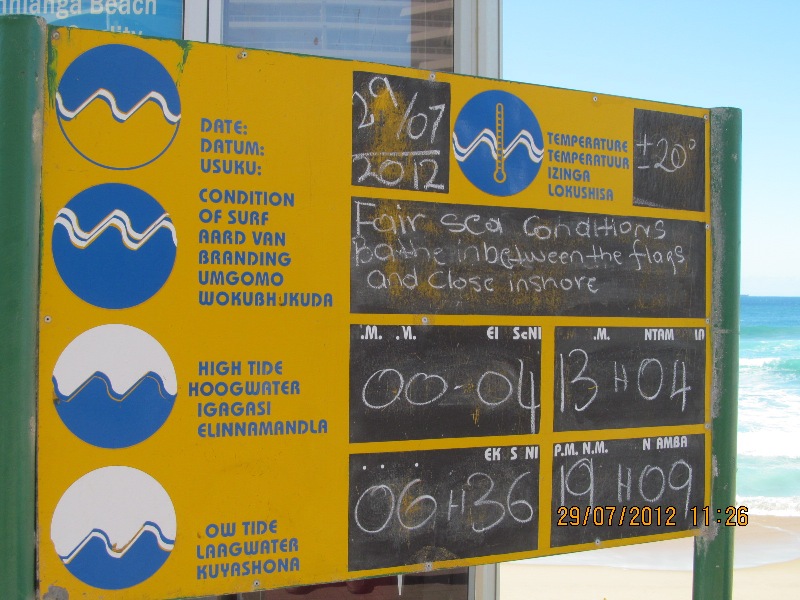 Beach
DATE:
DATUM:
USUKU:
29/07
2012
TEMPERATURE
TEMPERATUUR
IZINGA
LOKUSHISA
±20°
CONDITION
OF SURF
AARD VAN
BRANDING
UMGOMO
WOKUBHUKUDA
Fair sea Conditions
Bathe inbetween the flags
and Close inshore
HIGH TIDE
HOOGWATER
IGAGASI
ELINNAMANDLA
.M. .V. EI ScNI
00-04
.M. NTAM
13 H 04
OW TIDE
LAAGWATER
KUYASHONA
EK S NI
06 H 36
P.M. N.M. N AMBA
19 H 09
29/07/2012 11:26